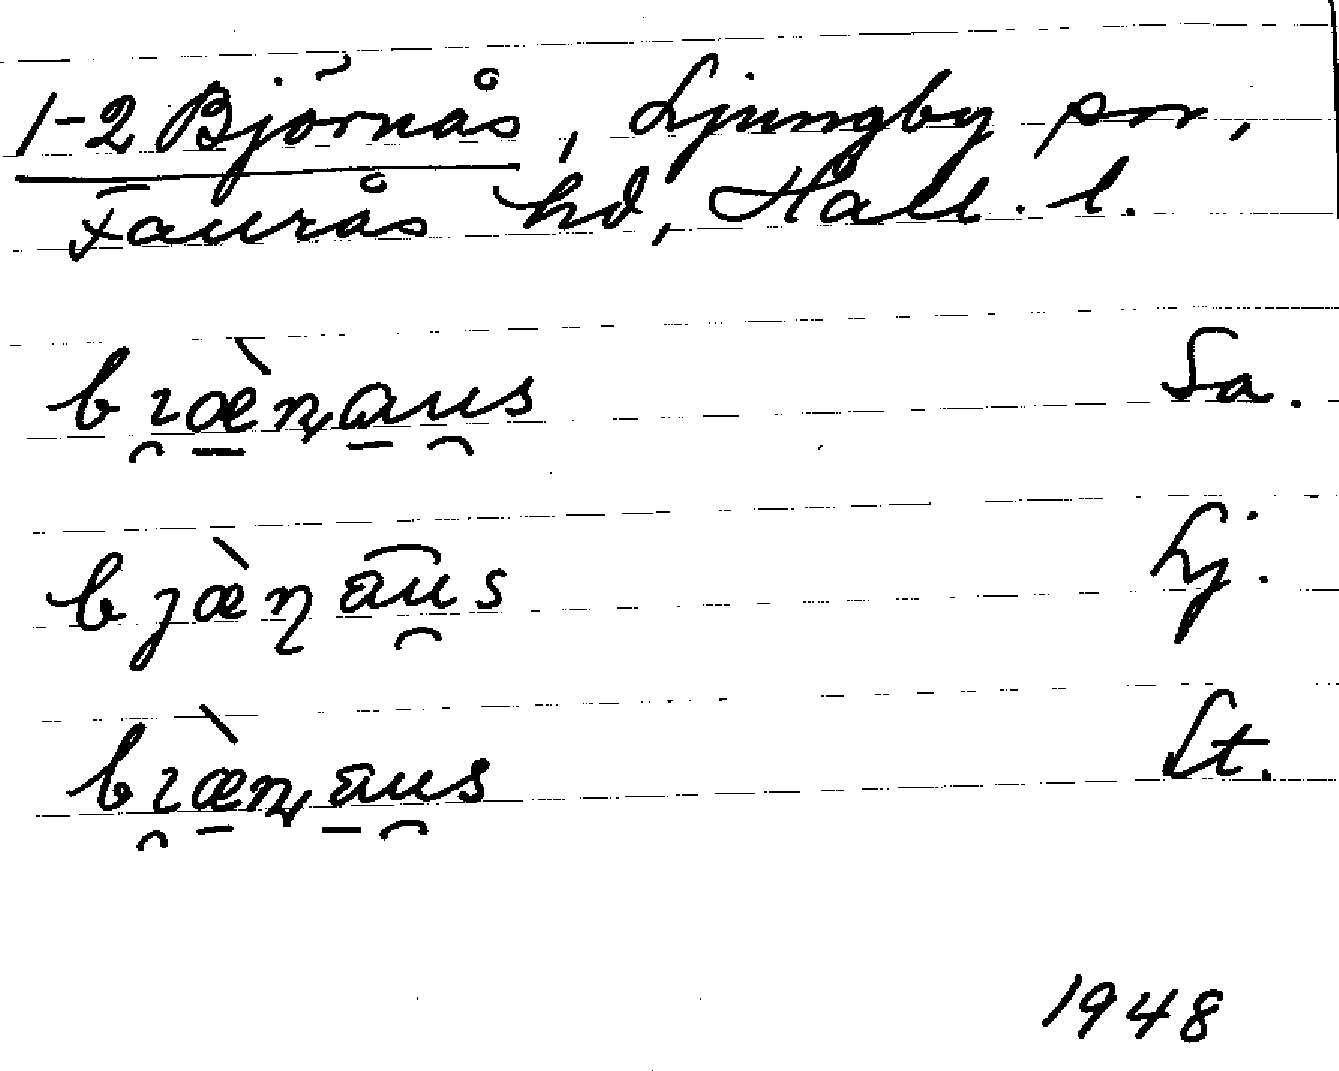 1-2 Björnås, Ljungby sn,
Faurås hd, Hall. l.
bı̯æ̠̀n̡a̠u̯s Sa.
bjæ̀ŋāu̯s Lj.
bı̯æ̠̀n̡ā̠u̯s St.
1948